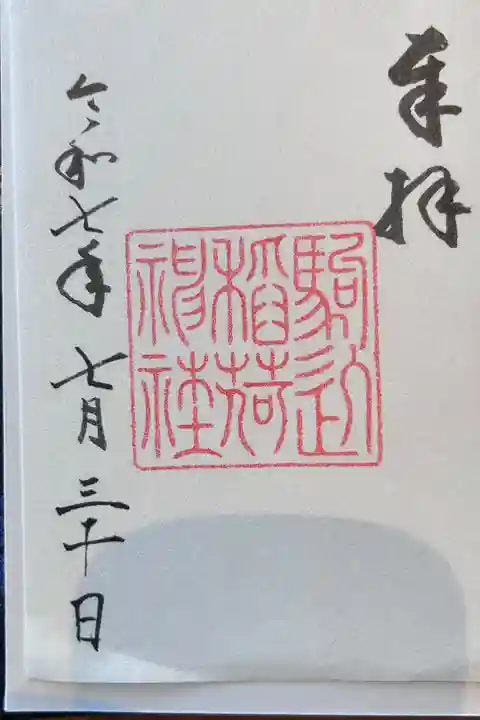 奉拝
駒込
稲荷
神社
令和七年七月三十日